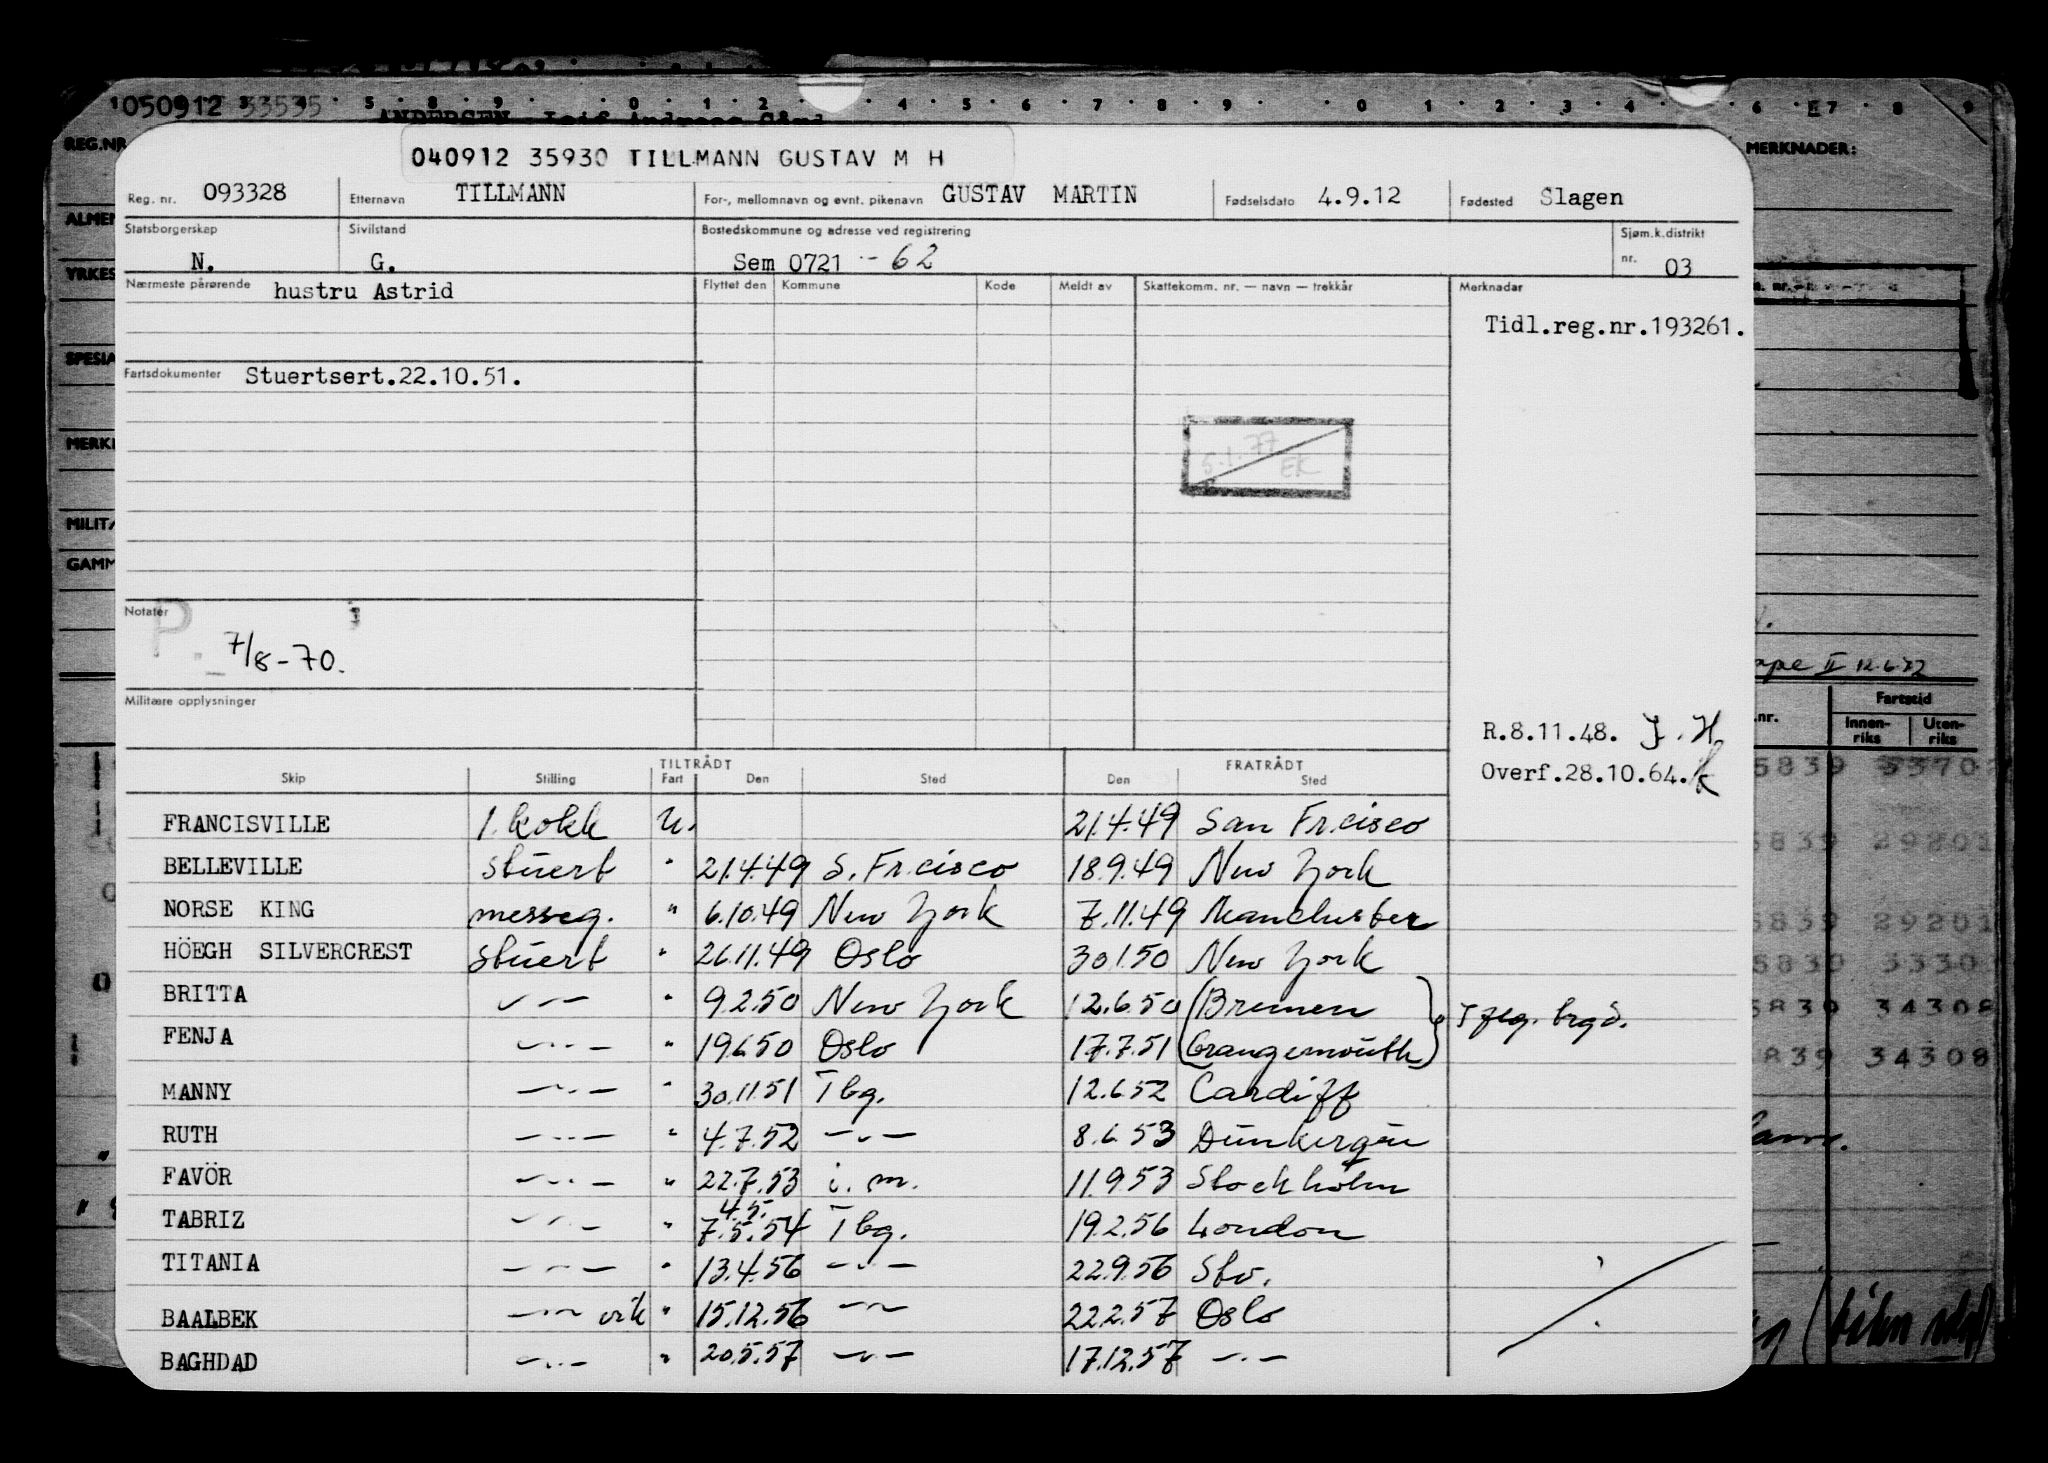 050912 33535
ANDERSEN
REG.NR
MERKNADER:
040912 35930 TILLMANN GUSTAV M H
Reg. nr. 093328 Etternavn TILLMANN For-, mellomnavn og evnt. pikenavn GUSTAV MARTIN Fødselsdato 4.9.12 Fødested Slagen
Statsborgerskap N. Sivilstand G. Bostedskommune og adresse ved registrering Sem 0721 - 62 Sjøm.k.distrikt nr. 03
Nærmeste pårørende hustru Astrid Flyttet den Kommune Kode Meldt av Skattekomm. nr. — navn — trekkår Merknader
Tidl.reg.nr.193261.
Fartsdokumenter Stuertsert.22.10.51.
5.1.77 EK
Notater
P.
7/8-70.
Militære opplysninger
R.8.11.48. J.H
Overf.28.10.64.
TILTRÅDT FRATRÅDT
Skip Stilling Fart Den Sted Den Sted
FRANCISVILLE 1. kokk U. 21.4.49 San Fr.cisco
BELLEVILLE stuert " 21.4.49 S. Fr.cisco 18.9.49 New York
NORSE KING messeg. " 6.10.49 New York 7.11.49 Manchester
HÖEGH SILVERCREST stuert " 26.11.49 Oslo 30.1.50 New York
BRITTA —"— " 9.2.50 New York 12.6.50 (Bremen
FENJA —"— " 19.6.50 Oslo 17.7.51 (Grangemouth)
MANNY —"— " 30.11.51 Tbg. 12.6.52 Cardiff
RUTH —"— " 4.7.52 —"— 8.6.53 Dünkerque
FAVÖR —"— " 22.7.53 i. m. 11.9.53 Stockholm
TABRIZ —"— " 4.5. 7.5.54 Tbg. 19.2.56 London
TITANIA —"— " 13.4.56 —"— 22.9.56 Sto.
BAALBEK —"— vik " 15.12.56 —"— 22.2.57 Oslo
BAGHDAD —"— " 20.5.57 —"— 17.12.57 —"—
ALMEN
YRKES
SPESIA
MERK
MILIT
GAMM
II 12.6.72
Fartstid
nr. Innen-riks Uten-riks
5839 5370
5839 29201
5839 29201
5839 3330
5839 34308
839 34308